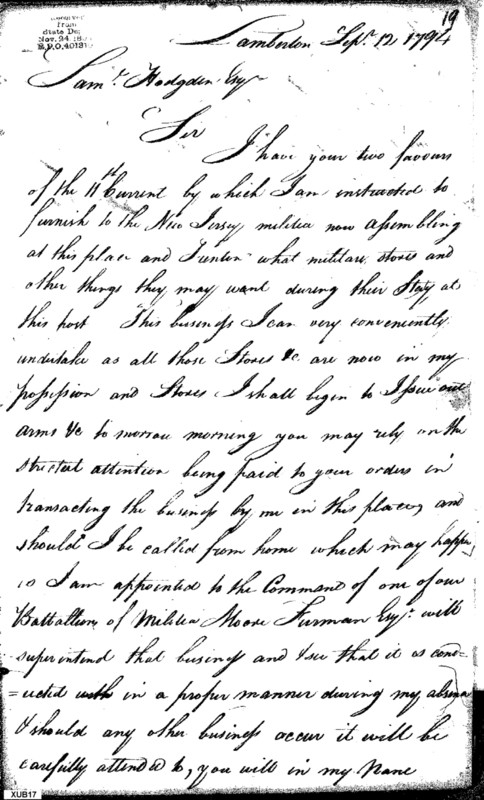 19
Received
from
State Dep
Nov. 24 18
R.P.O. 401310
Lamberton Sepr. 12 1794
Saml. Hodgden Esqr
Sir
I have your two favours
of the 11th Current by which I am instructed to
furnish to the New Jersey militia now assembling
at this place and Trenton what military stores and
other things they may want during their Stay at
this post This business I can very conveniently
undertake as all those Stores &c are now in my
possession and Stores I shall begin to Issue out
arms &c to morrow morning you may rely on the
strictest attention being paid to your orders in
transacting the business by me in this place, and
should I be called from home which may happen
as I am appointed to the Command of one of our
Battallions of Militia Moore Furman Esqr. will
superintend that business and & see that it is cond=
=ucted with in a proper manner during my absence
& should any other business occur it will be
carefully attended to, you will in my Name
XUB17